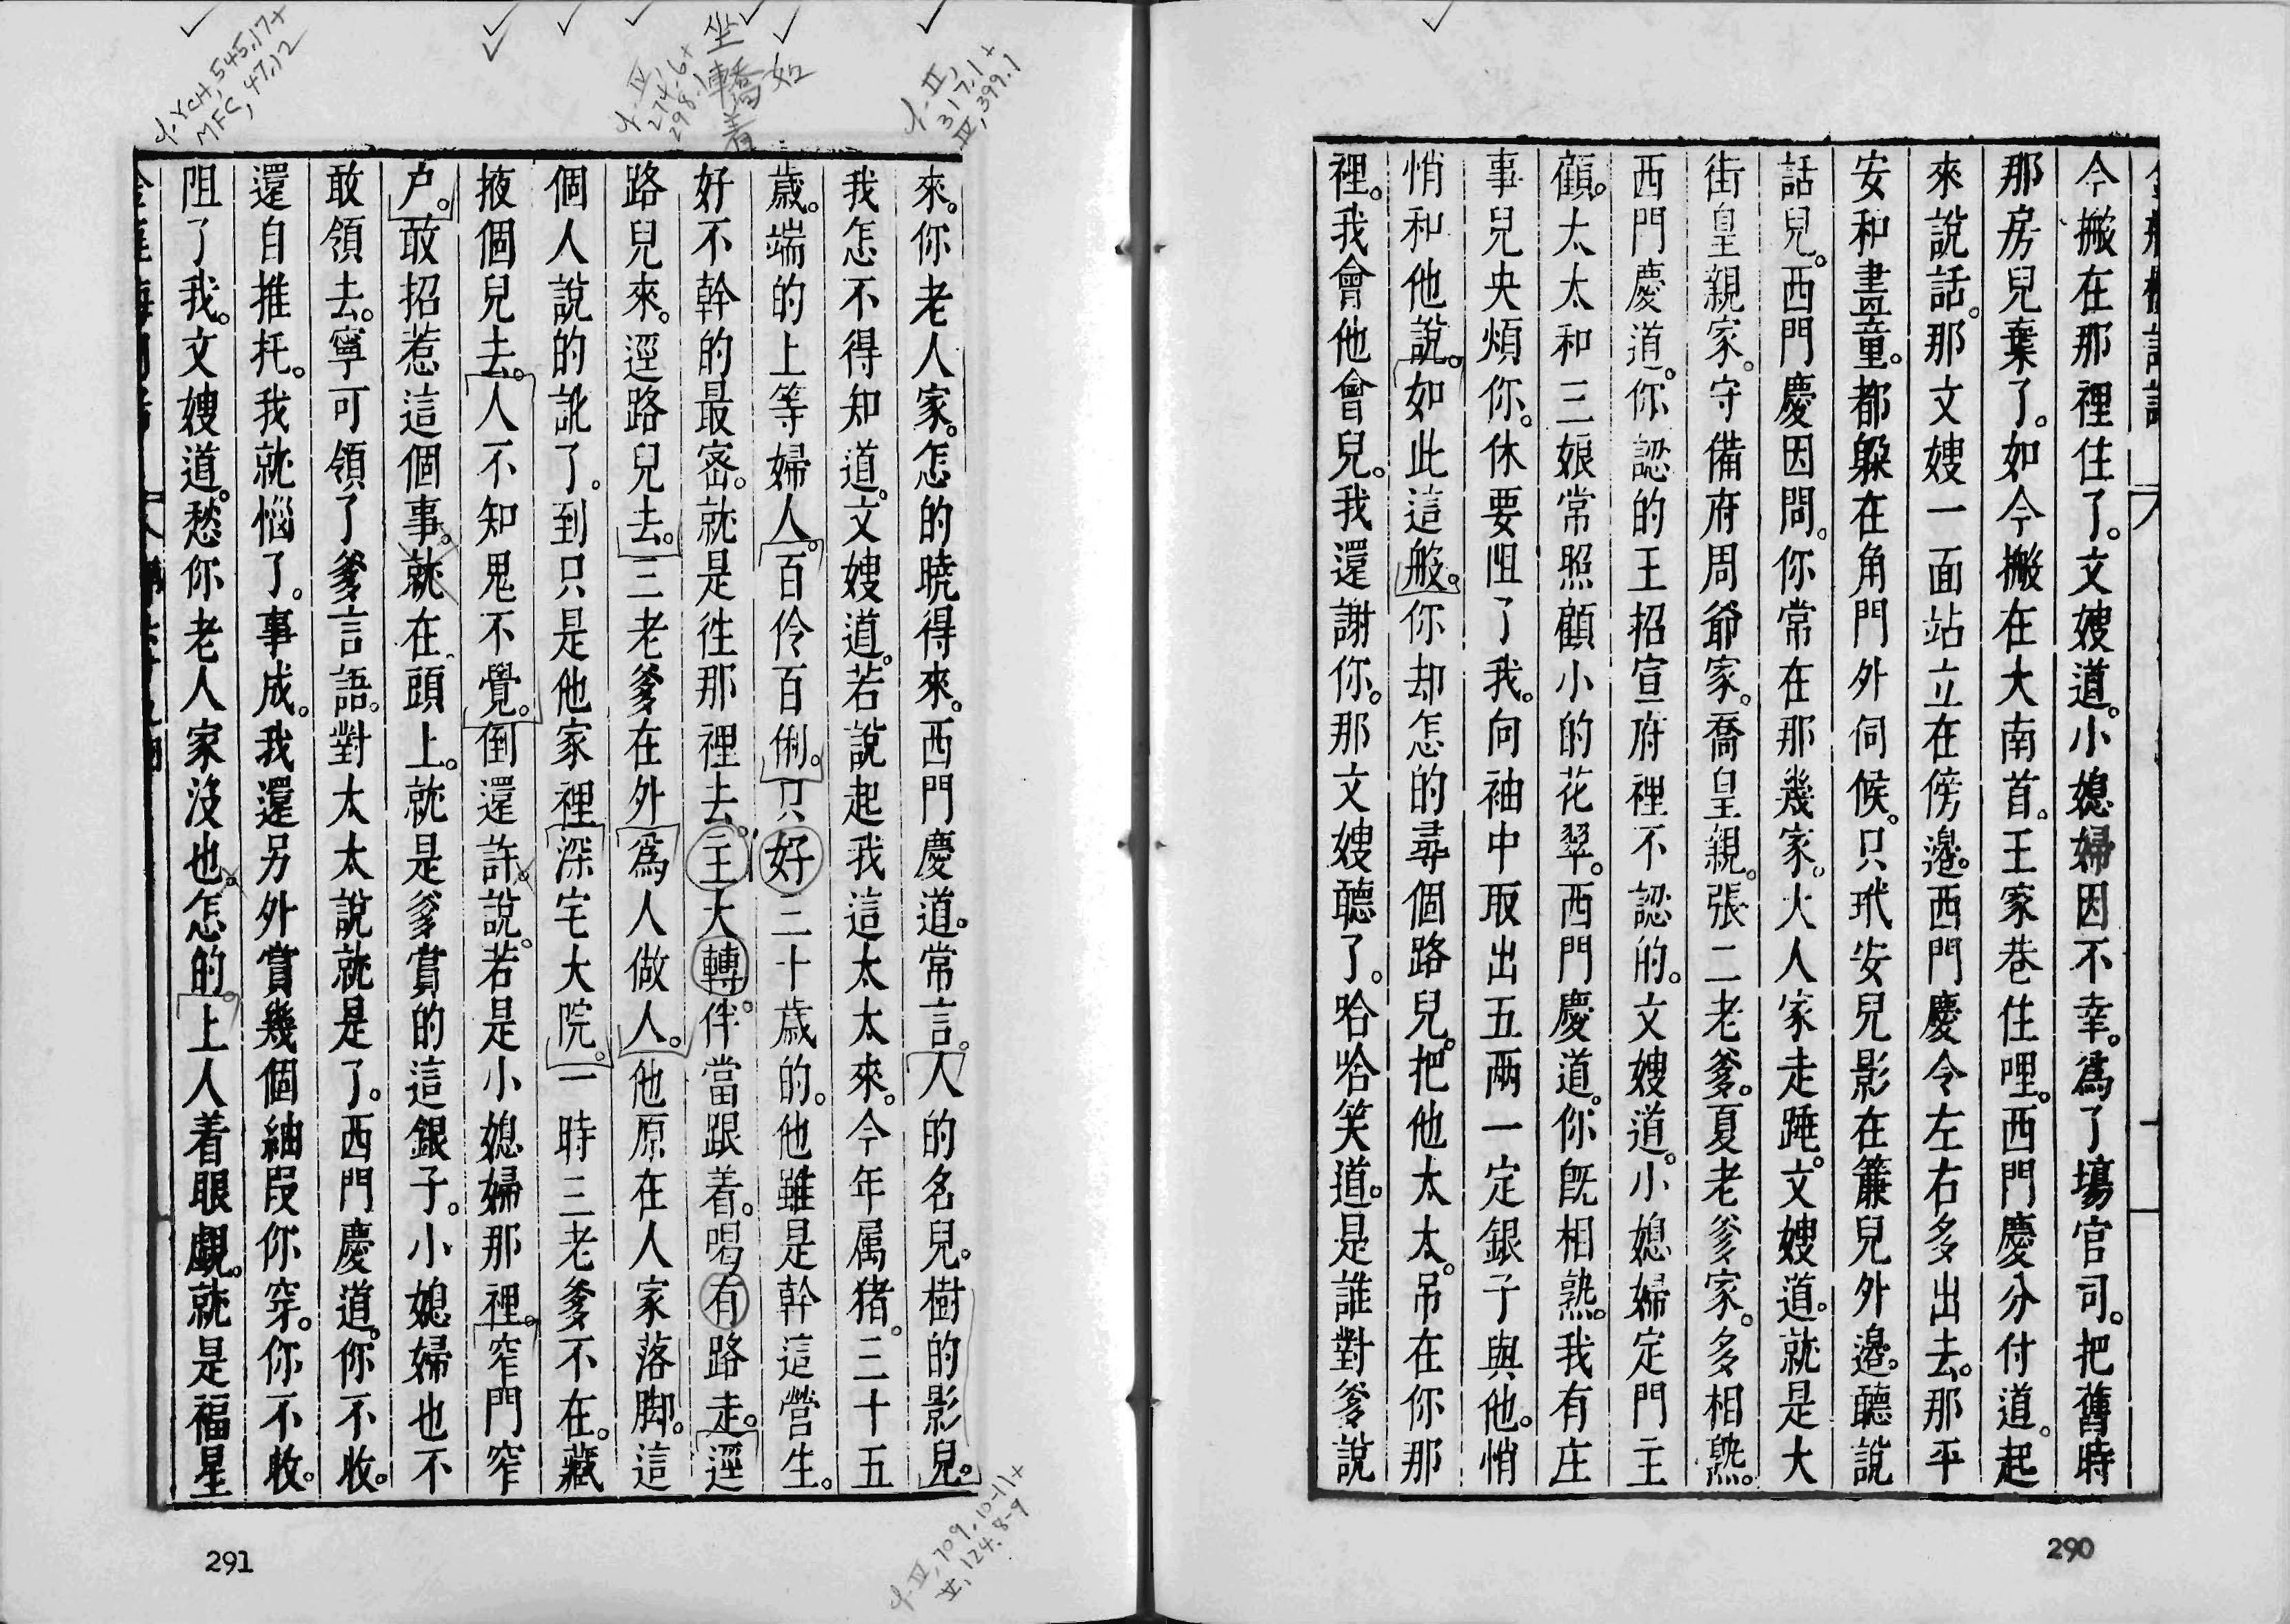 今搬在那裡住了。文嫂道。小媳婦因不幸。為了塲官司。把舊時
那房兒棄了。如今搬在大南首。王家巷住哩。西門慶分付道。起
來說話。那文嫂一面站立在傍邊。西門慶令左右多出去。那平
安和畫童。都躲在角門外伺候。只玳安兒影在簾兒外邊。聽說
話兒。西門慶因問。你常在那幾家。大人家走跳。文嫂道。就是大
街皇親家。守備府周爺家。喬皇親。張二老爹。夏老爹家。多相熟。
西門慶道。你認的王招宣府裡不認的。文嫂道。小媳婦定門主
顧。太太和三娘常照顧小的花翠。西門慶道。你既相熟。我有庄
事兒央煩你。休要阻了我。向袖中取出五兩一定銀子與他。悄
悄和他說。如此這般。你却怎的尋個路兒。把他太太。吊在你那
裡。我會他會兒。我還謝你。那文嫂聽了。哈哈笑道。是誰對爹說
來。你老人家。怎的曉得來。西門慶道。常言。人的名兒。樹的影兒。
我怎不得知道。文嫂道。若說起我這太太來。今年属猪。三十五
歲。端的上等婦人。百伶百俐。只好三十歲的。他雖是幹這營生。
好不幹的最密。就是徃那裡去。主大轉伴。當跟着。喝有路走。逕
路兒來。逕路兒去。三老爹在外為人做人。他原在人家落脚。這
個人說的訛了。到只是他家裡深宅大院。一時三老爹不在。藏
掖個兒去。人不知鬼不覺。倒還許。說。若是小媳婦那裡。窄門窄
户。敢招惹這個事。就在頭上。就是爹賞的這銀子。小媳婦也不
敢領去。寧可領了爹言語。對太太說就是了。西門慶道。你不收。
還自推托。我就惱了。事成。我還另外賞幾個紬段你穿。你不收。
阻了我。文嫂道。愁你老人家沒也。怎的。上人着眼覷。就是福星
290
291
坐轎着
如
YCH, 545.17+
MFC, 47.12
274.6+
298.1
II,
317.1+
399.1
709.10-11+
124.8-9